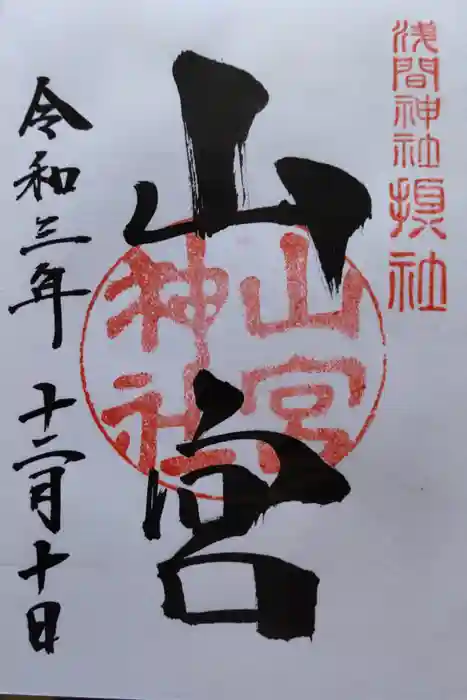 浅間神社摂社
山宮
山宮神社
令和三年十二月十日